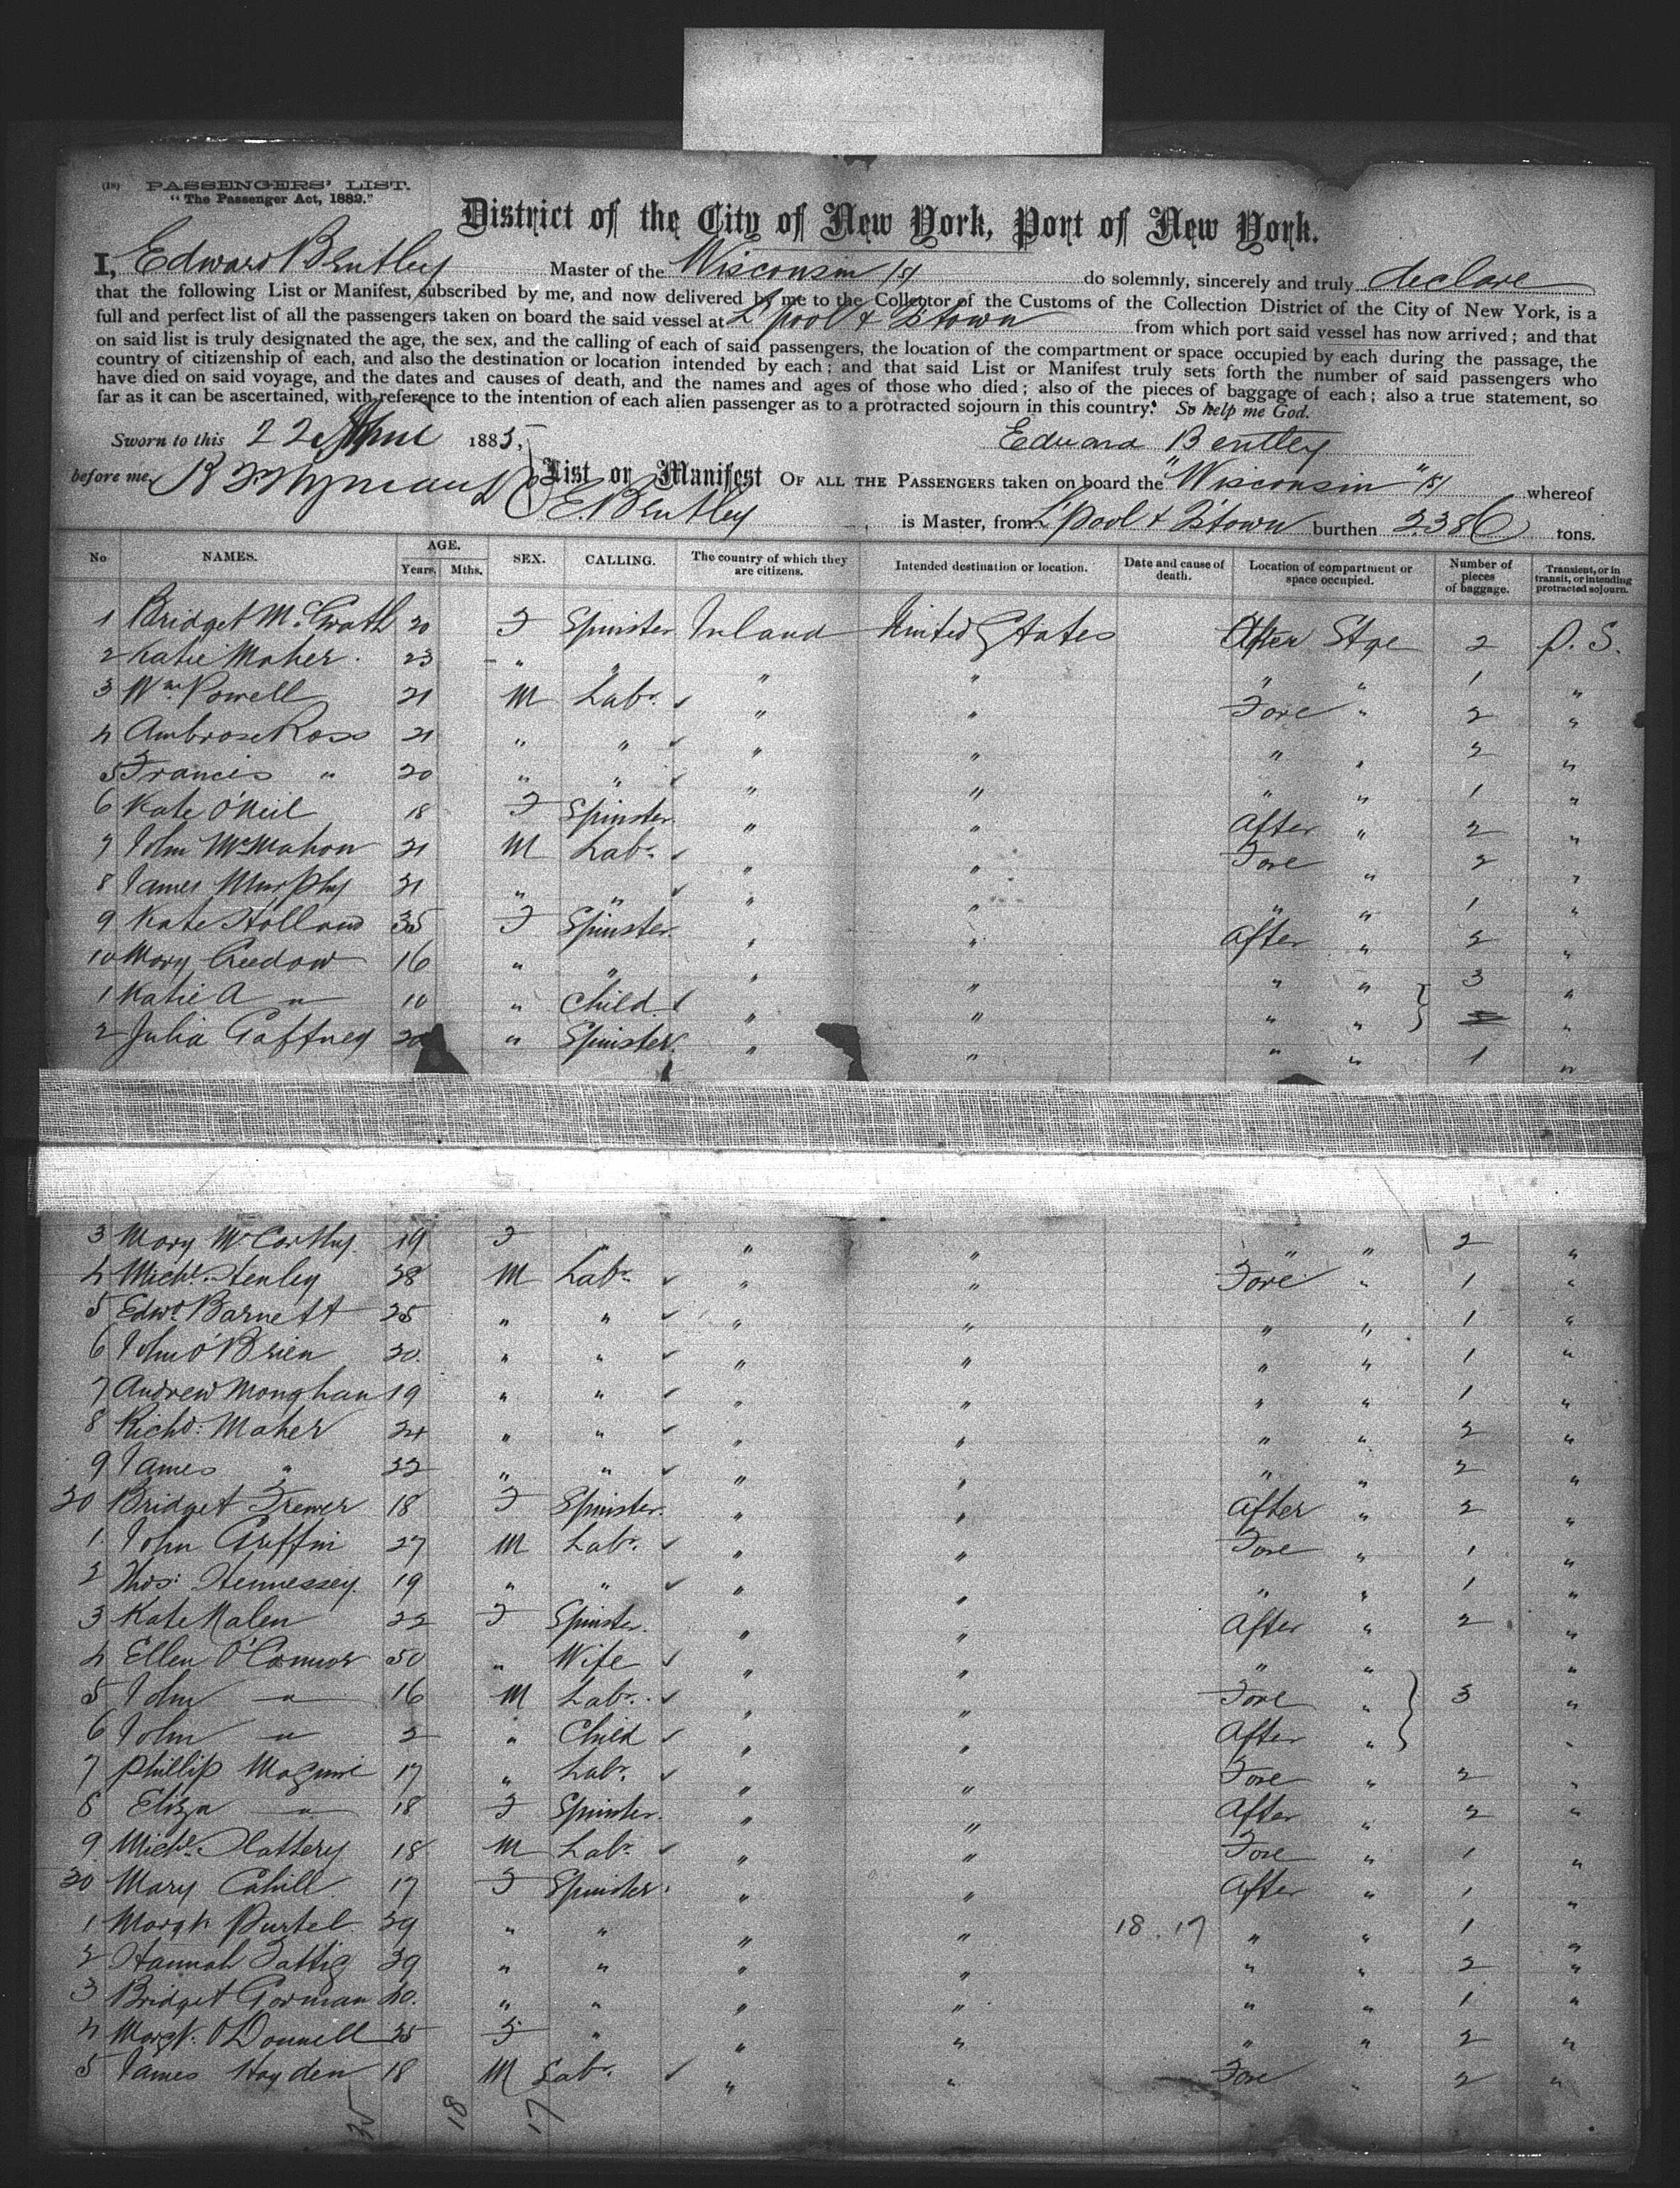 (18) PASSENGERS' LIST.
"The Passenger Act, 1882."
District of the City of New York, Port of New York.
I, Edward Bentley Master of the Wisconsin /s/ do solemnly, sincerely and truly declare
that the following List or Manifest, subscribed by me, and now delivered by me to the Collector of the Customs of the Collection District of the City of New York, is a
full and perfect list of all the passengers taken on board the said vessel at L'pool & Q'town from which port said vessel has now arrived; and that
on said list is truly designated the age, the sex, and the calling of each of said passengers, the location of the compartment or space occupied by each during the passage, the
country of citizenship of each, and also the destination or location intended by each; and that said List or Manifest truly sets forth the number of said passengers who
have died on said voyage, and the dates and causes of death, and the names and ages of those who died; also of the pieces of baggage of each; also a true statement, so
far as it can be ascertained, with reference to the intention of each alien passenger as to a protracted sojourn in this country. So help me God.
Sworn to this 22 April 1885, Edward Bentley
before me List or Manifest OF ALL THE PASSENGERS taken on board the "Wisconsin" /s/ whereof
E. Bentley is Master, from L'pool & Q'town burthen 2386 tons.
No NAMES. AGE. Years, Mths. SEX. CALLING. The country of which they are citizens. Intended destination or location. Date and cause of death. Location of compartment or space occupied. Number of pieces of baggage. Transient, or in transit, or intending protracted sojourn.
1 Bridget McGrath 20 F Spinster Ireland United States After Stge 2 P. S.
2 Katie Maher 23 " " " " " " 1 "
3 Wm Powell 21 M Labr. " " Fore " 2 "
4 Ambrose Ross 21 " " " " " " 2 "
5 Francis " 20 " " " " " " 1 "
6 Kate O'Neil 18 F Spinster " " After " 2 "
7 John McMahon 21 M Labr. " " Fore " 2 "
8 James Murphy 21 " " " " " " 1 "
9 Kate Holland 35 F Spinster " " After " 2 "
10 Mary Creedow 16 " " " " " " 3 "
1 Katie A " 10 " Child " " " " "
2 Julia Gaffney 20 " Spinster " " " " 1 "
3 Mary McCarthy 19 F " " " " " 2 "
4 Michl. Henley 28 M Labr. " " Fore " 1 "
5 Edwd. Barnett 25 " " " " " " 1 "
6 John O'Brien 20 " " " " " " 1 "
7 Andrew Monghan 19 " " " " " " 1 "
8 Richd: Maher 24 " " " " " " 2 "
9 James " 22 " " " " " " 2 "
20 Bridget Frewer 18 F Spinster " " After " 2 "
1 John Griffin 27 M Labr. " " Fore " 1 "
2 Thos: Hennessey 19 " " " " " " 1 "
3 Kate Malen 22 F Spinster " " After " 2 "
4 Ellen O'Connor 50 " Wife " " " " "
5 John " 16 M Labr. " " Fore " 3 "
6 John " 2 " Child " " After " "
7 Phillip Maguire 17 " Labr. " " Fore " 2 "
8 Eliza " 18 F Spinster " " After " 2 "
9 Michl. Slattery 18 M Labr. " " Fore " 1 "
30 Mary Cahill 17 F Spinster " " After " 1 "
1 Margt. Purtel 39 " " " " 18.17 " " 1 "
2 Hannah 39 " " " " " " 2 "
3 Bridget Gorman 40 " " " " " " 1 "
4 Margt. O'Donnell 35 F " " " " " 2 "
5 James Hayden 18 M Labr. " " Fore " 2 "
35 18 17